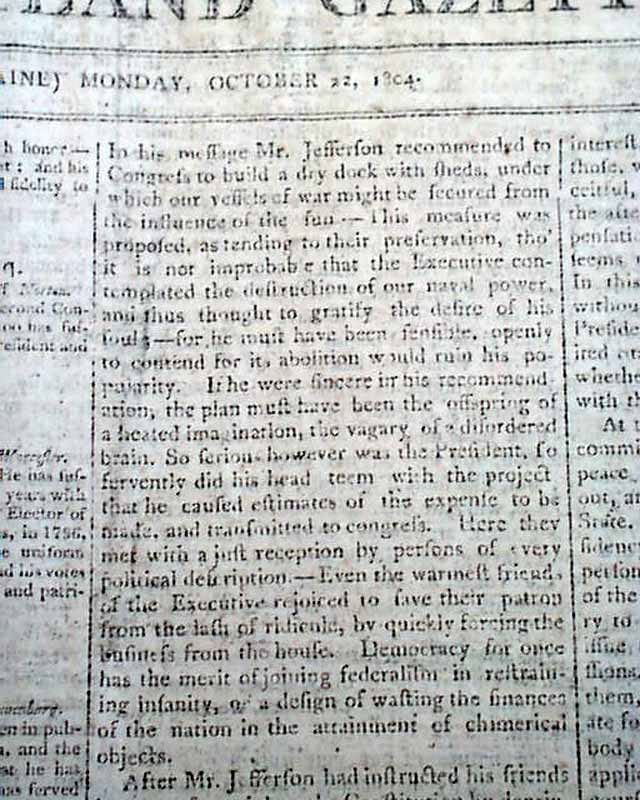 LAND GAZETT
AINE) MONDAY, OCTOBER 22, 1804.
h honor—
at: and his
fidelity to
9.
econd Con-
oo has ſuſ-
reſident and
Worceſter.
He has ſuſ-
years with
Elector of
s, in 1796,
e uniform
nd his votes
and patri-
en in pub-
a, and the
at he has
as ſerved
In his meſſage Mr. Jefferſon recommended to
Congreſs to build a dry dock with ſheds, under
which our veſſels of war might be ſecured from
the influence of the ſun.—This meaſure was
propoſed, as tending to their preſervation, tho'
it is not improbable that the Executive con-
templated the deſtruction of our naval power,
and thus thought to gratify the deſire of his
ſoul;—for he muſt have been ſenſible, openly
to contend for its abolition would ruin his po-
pularity. If he were ſincere in his recommend
ation, the plan muſt have been the offspring of
a heated imagination, the vagary of a diſordered
brain. So ſerious however was the Preſident, ſo
fervently did his head teem with the project
that he cauſed eſtimates of the expenſe to be
made, and tranſmitted to congreſs. Here they
met with a juſt reception by perſons of every
political deſcription.—Even the warmeſt friends
of the Executive rejoiced to ſave their patron
from the laſh of ridicule, by quickly forcing the
buſineſs from the houſe. Democracy for once
has the merit of joining federaliſm in reſtrain-
ing inſanity, or a deſign of waſting the finances
of the nation in the attainment of chimerical
objects.
After Mr. Jefferſon had inſtructed his friends
intereſt
thoſe, w
ceitful,
the afte
penſatio
ſeems
In this
withou
Preſide
ired o
whethe
with th
At t
commi
peace.
out, a
State.
ſidenc
perſon
of the
ry to
iſſue,
ſſions.
them,
ate fo
body
appli